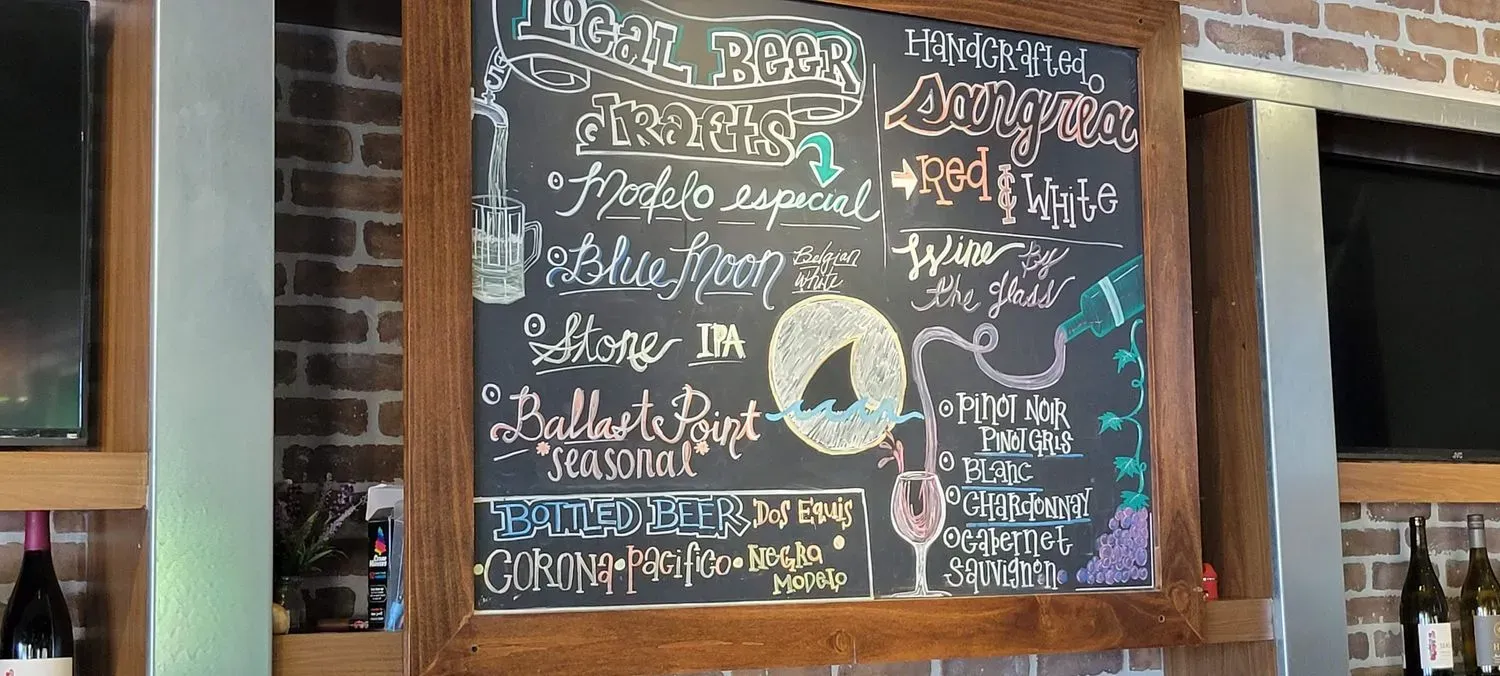 LOCAL BEER
drafts
Modelo especial
Blue Moon Belgian White
Stone IPA
Ballast Point
*seasonal*
BOTTLED BEER Dos Equis
CORONA • PACIFICO • NEGRA MODELO
HANDCRAFTED
sangria
Red & White
Wine By
the glass
PINOT NOIR
PINOT GRIS
BLANC
CHARDONNAY
CABERNET
SAUVIGNON
JVC